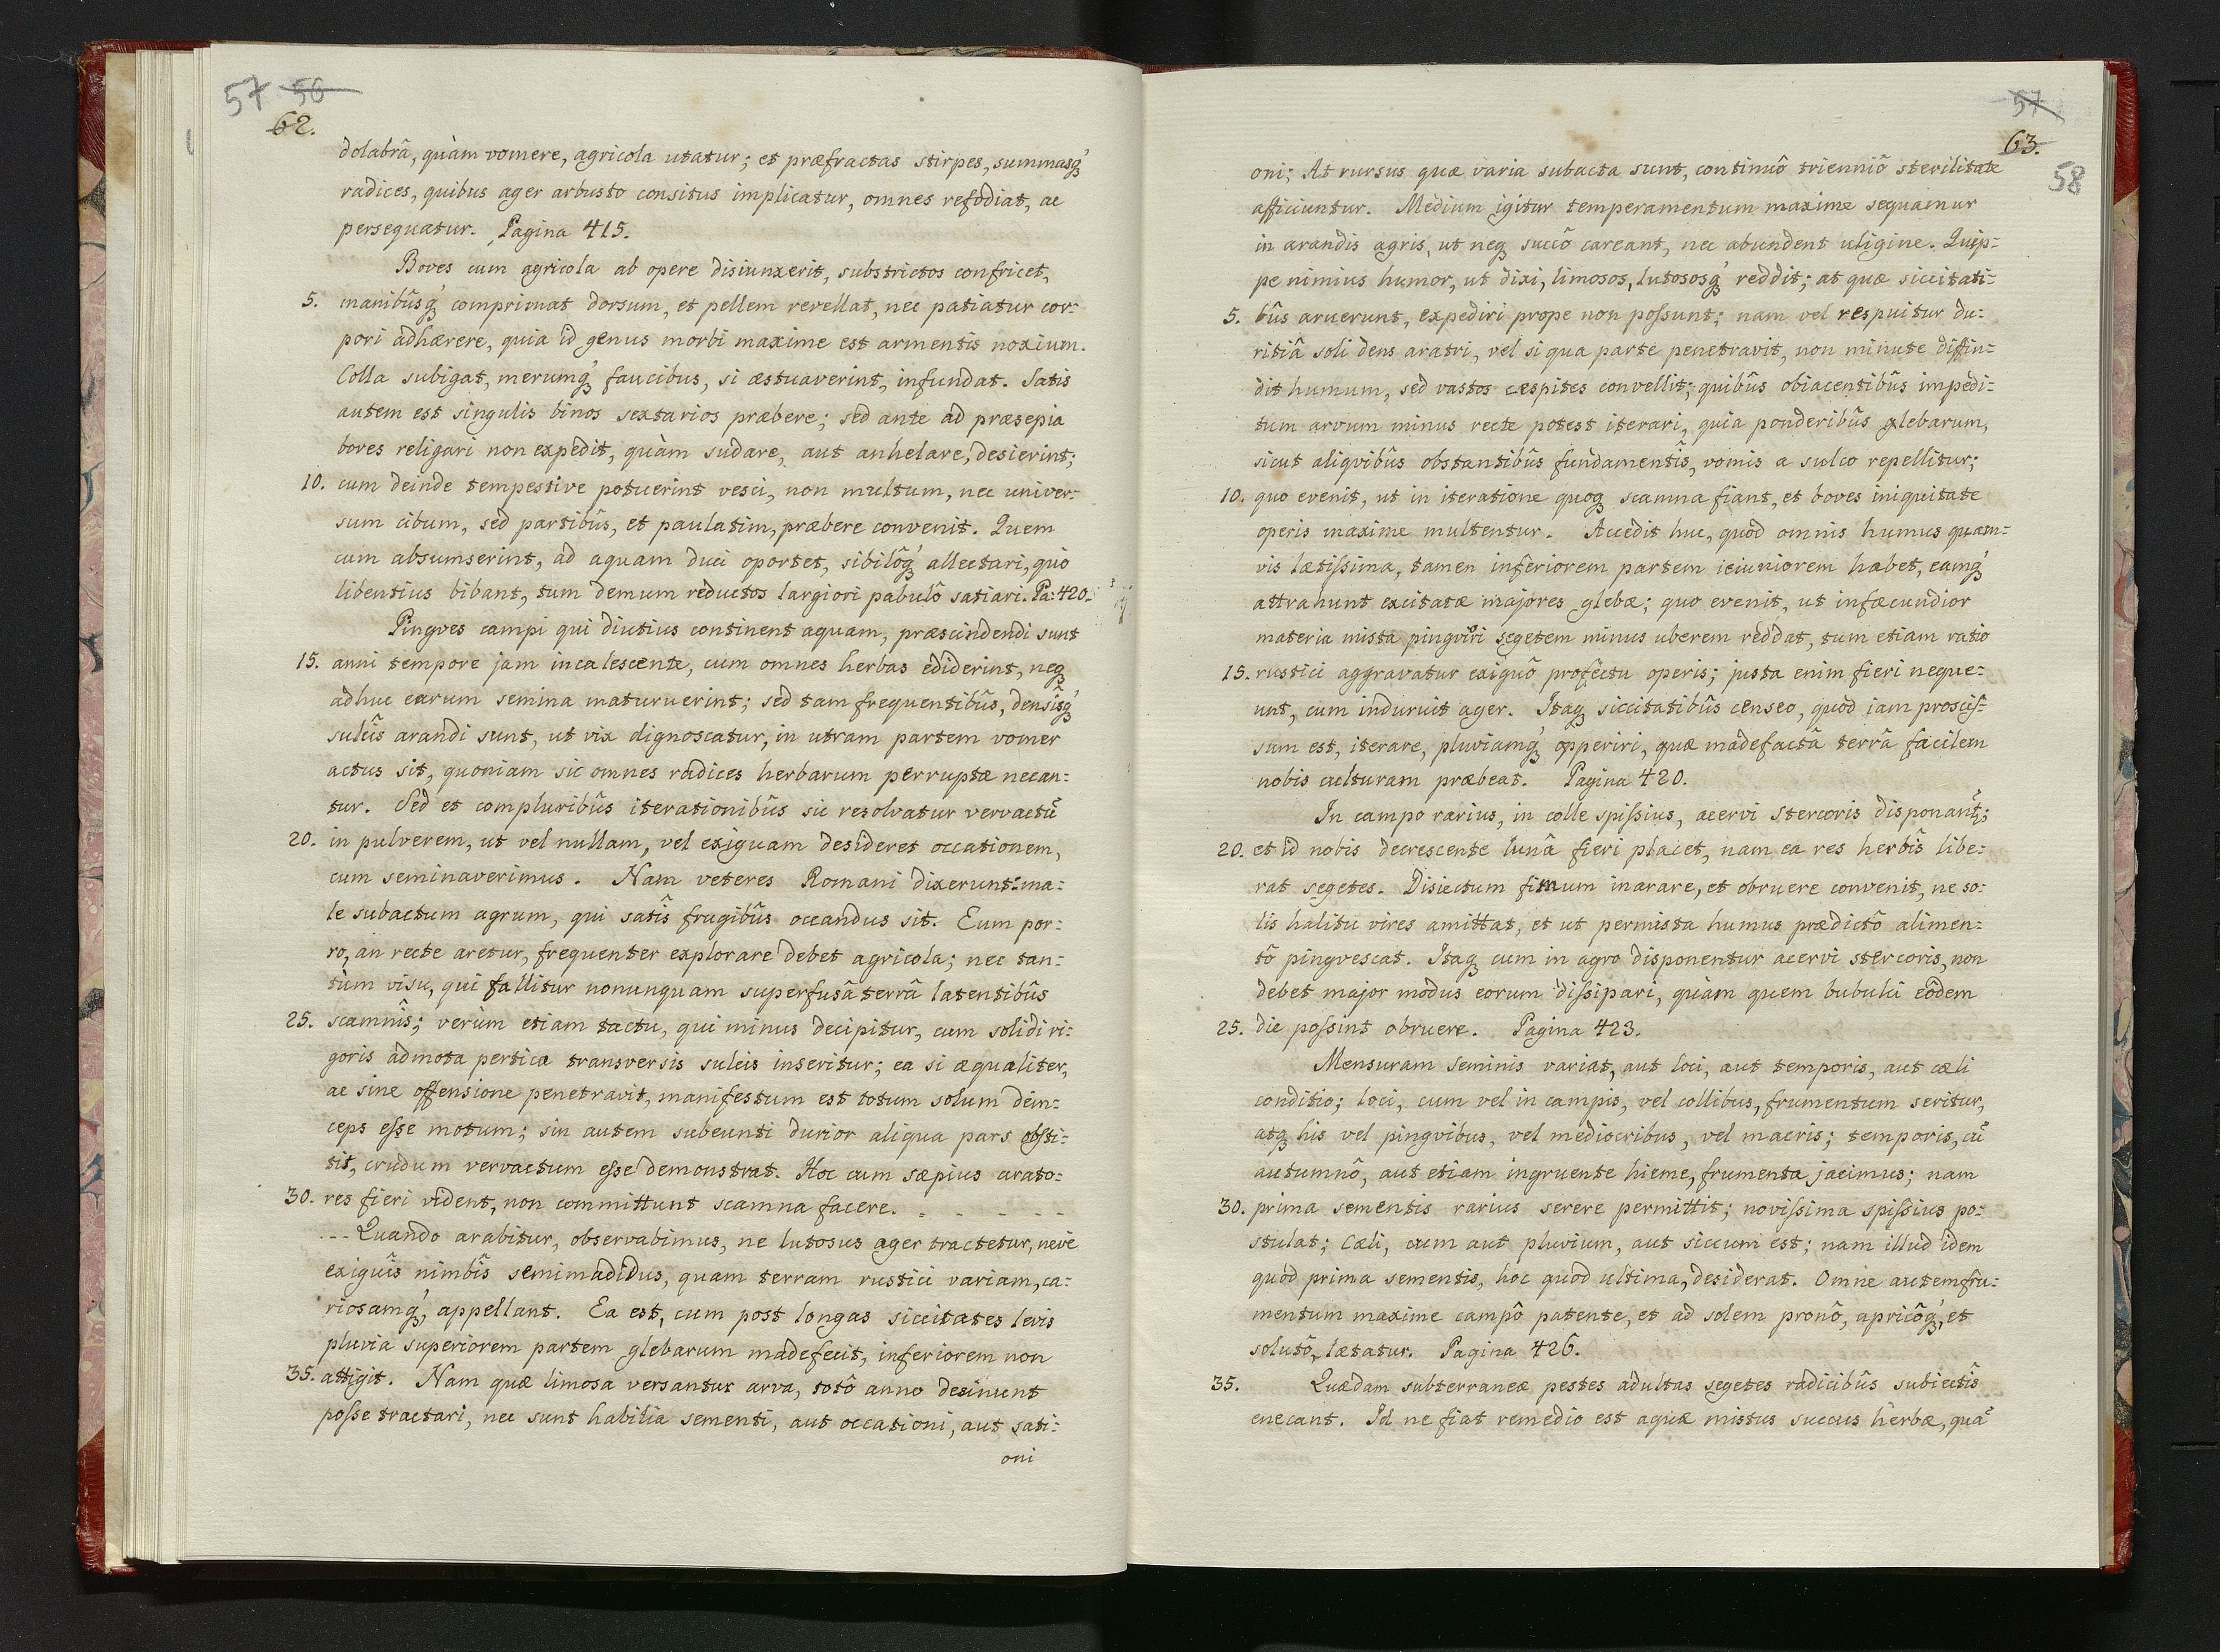 57 56
62.
dolabrâ, quàm vomere, agricola utatur; et præfractas stirpes, summasq́
radices, quibus ager arbusto consitus implicatur, omnes refodiat, ac
persequatur. Pagina 415.
Boves cum agricola ab opere disiunxerit, substrictos confricet,
5. manibûsq́ comprimat dorsum, et pellem revellat, nec patiatur cor:
pori adhærere, quia id genus morbi maxime est armentis noxium.
Colla subigat, merumq́ faucibus, si æstuaverint, infundat. Satis
autem est singulis binos sextarios præbere; sed ante ad præsepia
boves religari non expedit, quàm sudare, aut anhelare, desierint;
10. cum deinde tempestive potuerint vesci, non multum, nec univer:
sum cibum, sed partibûs, et paulatim, præbere convenit. Quem
cum absumserint, ad aquam duci oportet, sibilôq́ allectari, quo
libentius bibant, tum demum reductos largiori pabulô satiari. Pa: 420.
Pingves campi qui diutius continent aquam, præscindendi sunt
15. anni tempore jam incalescente, cum omnes herbas ediderint, neq
adhuc earum semina maturuerint; sed tam frequentibûs, densîsq́
sulcîs arandi sunt, ut vix dignoscatur, in utram partem vomer
actus sit, quoniam sic omnes radices herbarum perruptæ necan:
tur. Sed et compluribûs iterationibûs sic resolvatur vervactũ
20. in pulverem, ut vel nullam, vel exiguam desideret occationem,
cum seminaverimus. Nam veteres Romani dixerunt: ma:
le subactum agrum, qui satîs frugibûs occandus sit. Eum por:
ro, an recte aretur, frequenter explorare debet agricola; nec tan:
tùm visu, qui fallitur nonunquam superfusâ terrâ latentibûs
25. scamnîs; verùm etiam tactu, qui minus decipitur, cum solidi ri:
goris admota pertica transversis sulcis inseritur; ea si æqualiter,
ac sine offensione penetravit, manifestum est totum solum dein:
ceps eſse motum; sin autem subeunti durior aliqua pars obsti:
tit, crudum vervactum eſse demonstrat. Hoc cum sæpius arato:
30. res fieri vident, non committunt scamna facere. . - - - -
--- Quando arabitur, observabimus, ne lutosus ager tractetur, neve
exiguîs nimbîs semimadidus, quam terram rustici variam, ca:
riosamq́, appellant. Ea est, cum post longas siccitates levis
pluvia superiorem partem glebarum madefecit, inferiorem non
35. attigit. Nam quæ limosa versantur arva, totô anno desinunt
poſse tractari, nec sunt habilia sementi, aut occationi, aut sati:
oni
57
63.
58
oni; At rursus quæ varia subacta sunt, continuô trienniô sterilitate
afficiuntur. Medium igitur temperamentum maxime sequamur
in arandis agris, ut neq succô careant, nec abundent uligine. Quip:
pe nimius humor, ut dixi, limosos, lutososq́ reddit; at quæ siccitati:
5. bûs aruerunt, expediri prope non poſsunt; nam vel respuitur du:
ritiâ soli dens aratri, vel si qua parte penetravit, non minute diffin:
dit humum, sed vastos cespites convellit; quibûs obiacentibûs impedi:
tum arvum minus recte potest iterari, quia ponderibûs glebarum,
sicut aliqvibûs obstantibûs fundamentîs, vomis a sulco repellitur;
10. quo evenit, ut in iteratione quoq scamna fiant, et boves iniquitate
operis maxime multentur. Accedit huc, quòd omnis humus quam:
vis lætiſsima, tamen inferiorem partem ieiuniorem habet, eamq́
attrahunt excitatæ majores glebæ; quo evenit, ut infæcundior
materia mista pingviori segetem minus uberem reddat, tum etiam ratio
15. rustici aggravatur exiguô profectu operis; justa enim fieri neque:
unt, cum induruit ager. Itaq siccitatibûs censeo, quòd iam prosciſ:
sum est, iterare, pluviamq́ opperiri, quæ madefactâ terrâ facilem
nobis culturam præbeat. Pagina 420.
In campo rarius, in colle spiſsius, acervi stercoris disponant̃;
20. et id nobis decrescente lunâ fieri placet, nam ea res herbîs libe:
rat segetes. Disiectum fimum inarare, et obruere convenit, ne so:
lis halitu vires amittat, et ut permista humus prædictô alimen:
tô pingvescat. Itaq cum in agro disponentur acervi stercoris, non
debet major modus eorum diſsipari, quàm quem bubulci eôdem
25. die poſsint obruere. Pagina 423.
Mensuram seminis variat, aut loci, aut temporis, aut cæli
conditio; loci, cum vel in campis, vel collibus, frumentum seritur,
atq his vel pingvibus, vel mediocribus, vel macris; temporis, cũ
autumnô, aut etiam ingruente hieme, frumenta jacimus; nam
30. prima sementis rarius serere permittit; noviſsima spiſsius po:
stulat; Cæli, cum aut pluvium, aut siccum est; nam illud idem
quòd prima sementis, hoc quòd ultima, desiderat. Omne autem fru:
mentum maxime campô patente, et ad solem pronô, apricôq́, et
solutô, lætatur. Pagina 426.
35. Quædam subterraneæ pestes adultas segetes radicibûs subiectîs
enecant. Id ne fiat remedio est aquæ mistus succus herbæ, quã